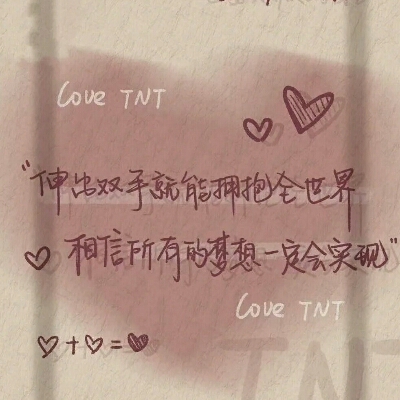 Love TNT
"伸出双手就能拥抱全世界
相信所有的梦想一定会实现"
Love TNT
♡+♡=♥
TNT